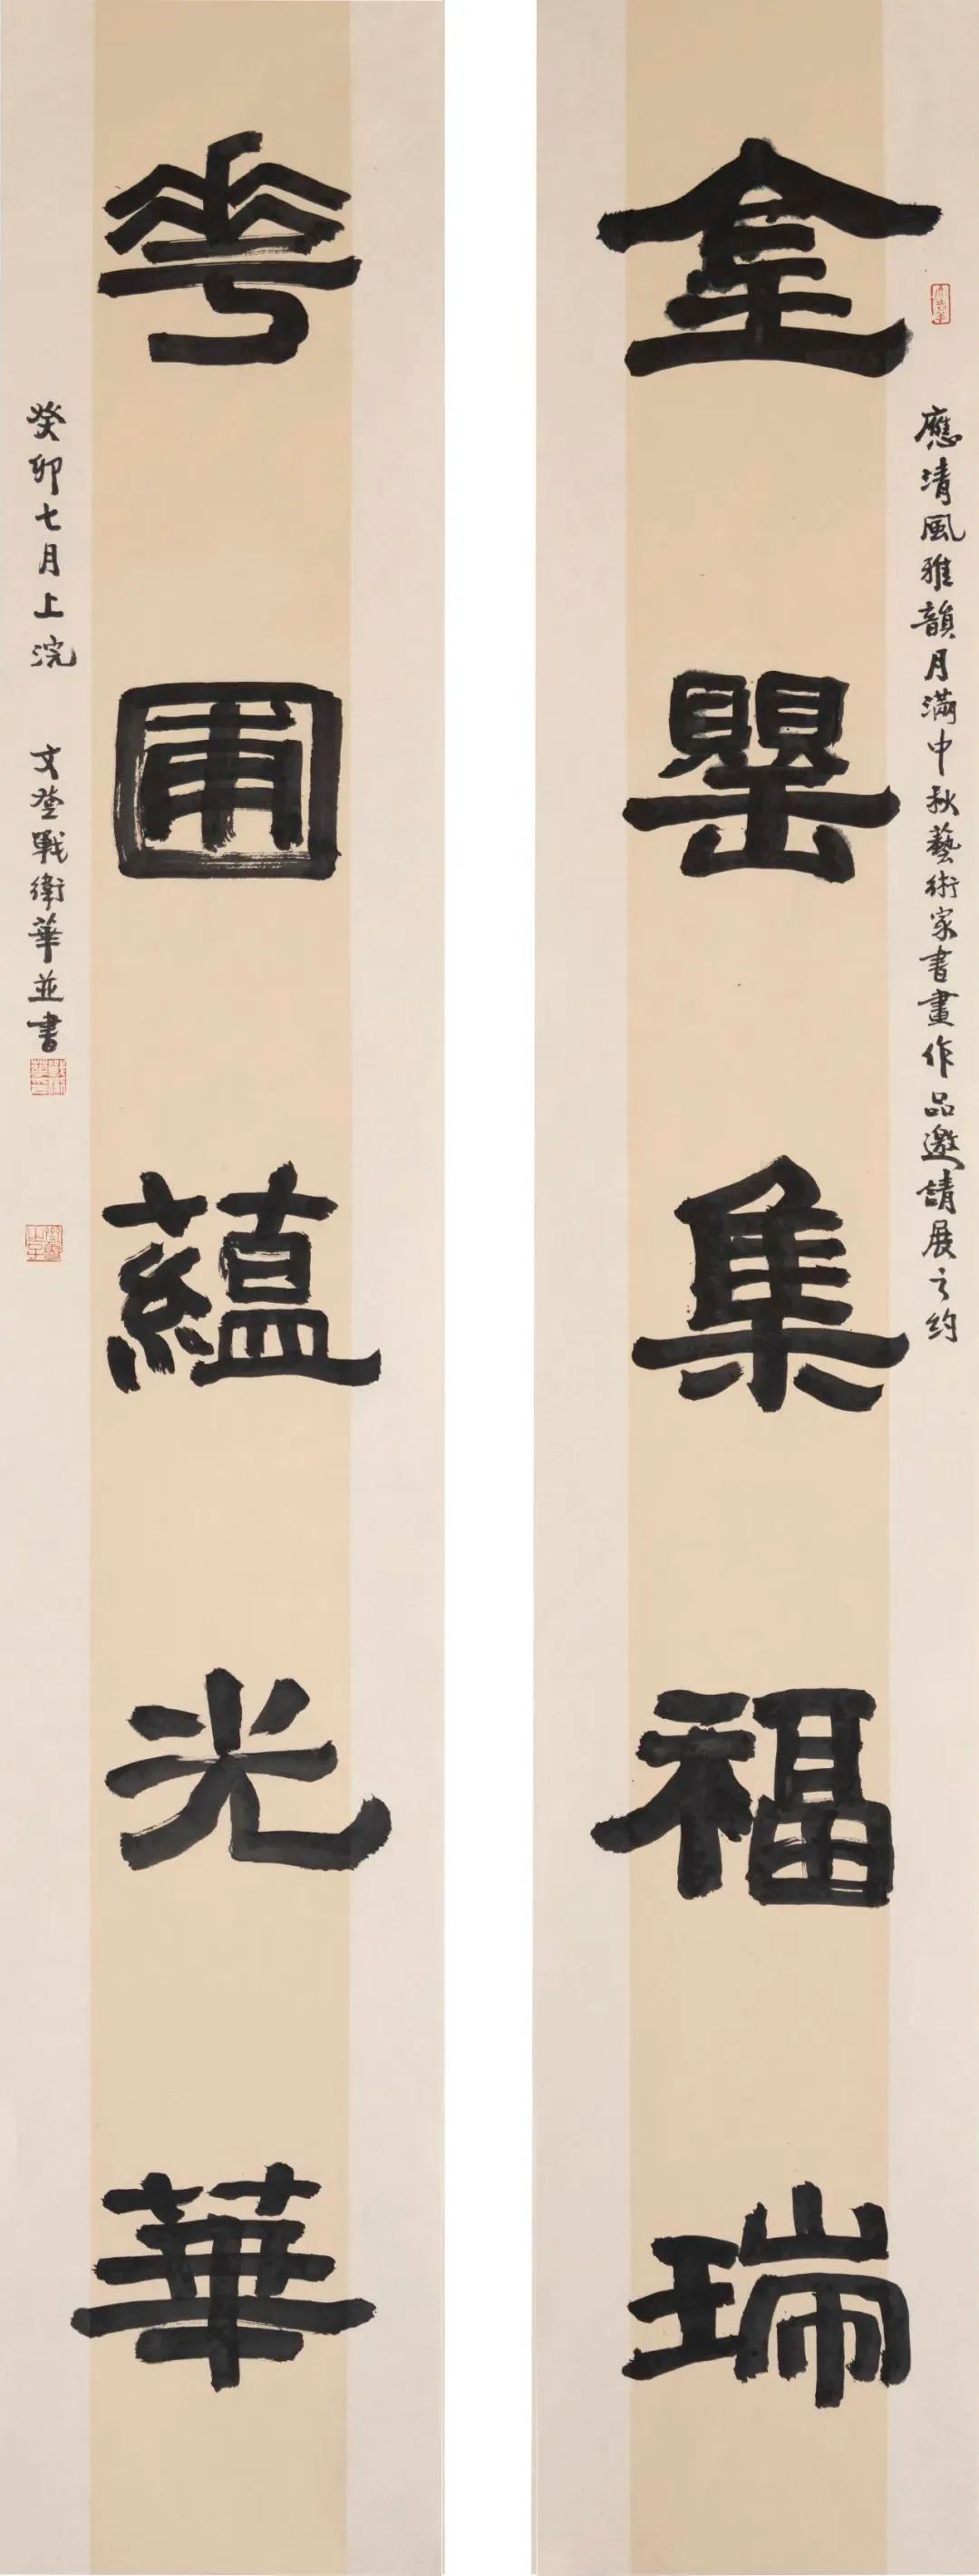 金罌集福瑞
應清風雅韻月滿中秋藝術家書畫作品邀請展之約
𠌶圃蘊光華
癸卯七月上浣 文登戰衛華並書